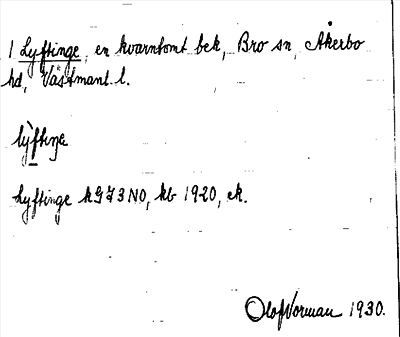 1 Lyftinge, en kvarntomt bek, Bro sn, Åkerbo
hd, Västmanl.
lỳftiŋe
Lyftinge kG73NO, kb 1920, ek.
Olof Norman 1930.